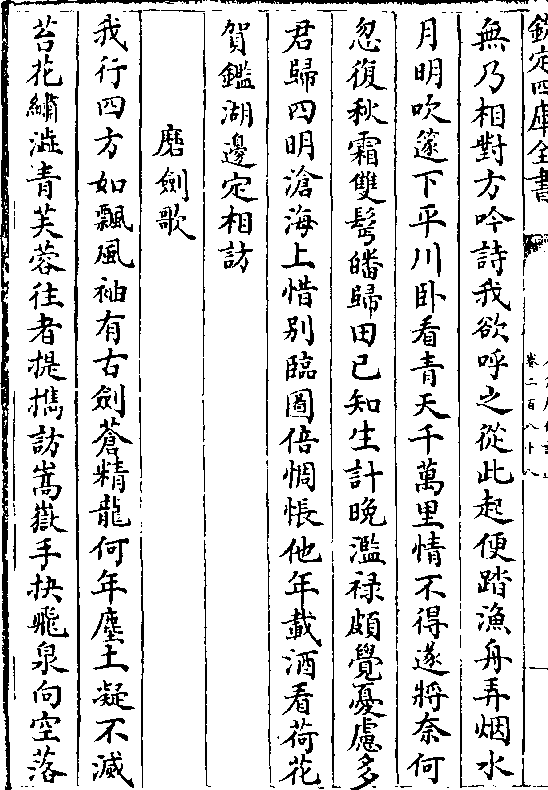 欽定四庫全書
卷二百八十八
無乃相對方吟詩我欲呼之從此起便踏漁舟弄烟水
月明吹篴下平川卧看青天千萬里情不得遂將奈何
忽復秋霜雙鬢皤歸田已知生計晚濫禄頗覺憂慮多
君歸四明滄海上惜别臨圖倍惆悵他年載酒看荷花
賀鑑湖邊定相訪
磨劍歌
我行四方如飄風袖有古劍蒼精龍何年塵土凝不滅
苔花繡澁青芙蓉往者提攜訪嵩嶽手抉飛泉向空落